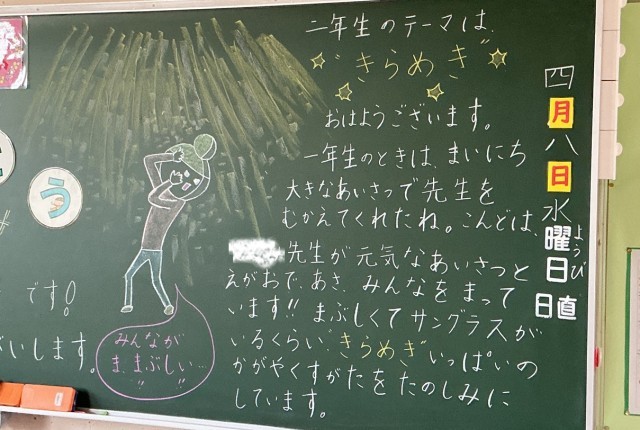 四月八日水曜日
ようび
日直
二年生のテーマは、
"きらめき"
おはようございます。
一年生のときは、まいにち
大きなあいさつで先生を
むかえてくれたね。こんどは、
先生が元気なあいさつと
えがおで、あさ、みんなをまって
います!! まぶしくてサングラスが
いるくらい"きらめき"いっぱいの
かがやくすがたをたのしみに
しています。
みんなが
ま、まぶしい…
!! !!
う
です!
いします。